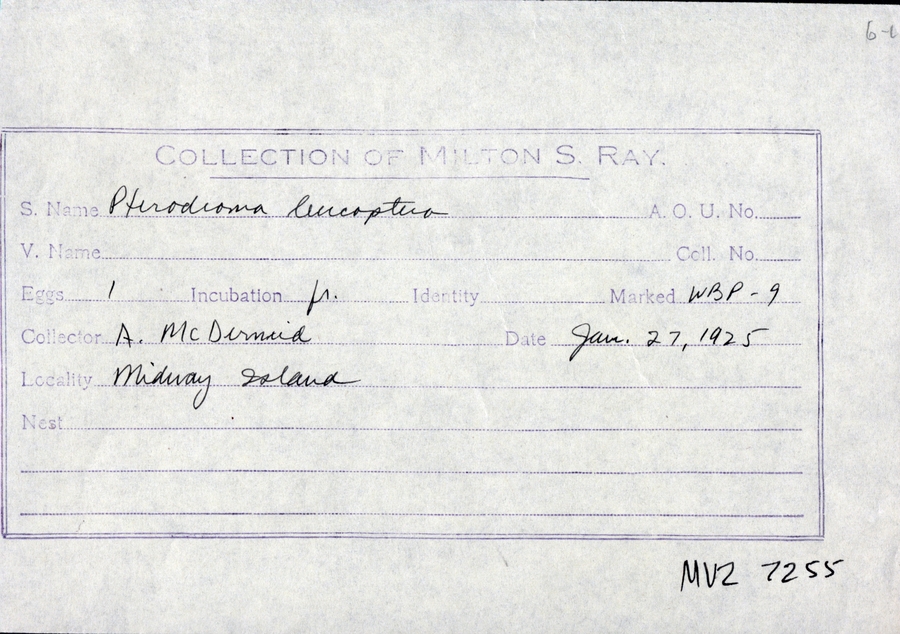 6-
COLLECTION OF MILTON S. RAY.
S. Name Pterodroma leucoptera A. O. U. No.
V. Name Coll. No.
Eggs 1 Incubation fr. Identity Marked WBP-9
Collector A. McDermid Date Jan. 27, 1925
Locality Midway Island
Nest
MVZ 7255